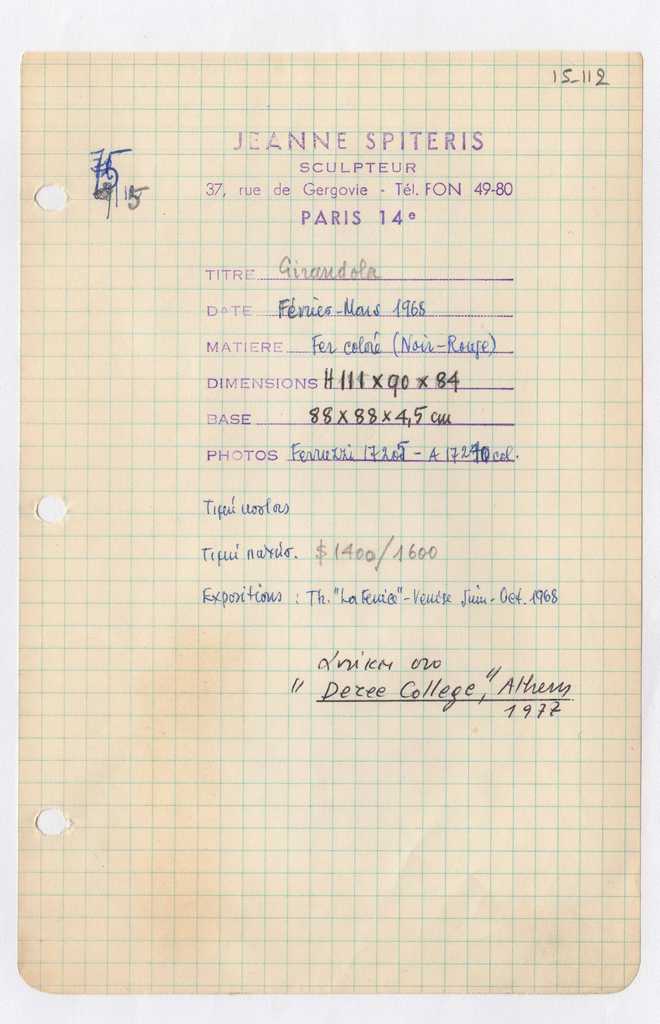 15-112
JEANNE SPITERIS
SCULPTEUR
37, rue de Gergovie - Tél. FON 49-80
PARIS 14e
75
115
TITRE Girandola
DATE Février-Mars 1968
MATIERE Fer coloré (Noir-Rouge)
DIMENSIONS H 111 x 90 x 84
BASE 88 x 88 x 4,5 cm
PHOTOS Ferruzzi 17205 - A 17240 col.
Τιμή κόστους
Τιμή $1400/1600
Expositions : Th. "La Fenice" - Venise Juin - Oct. 1968
ἀνήκει στο
"Deree College", Athens
1977